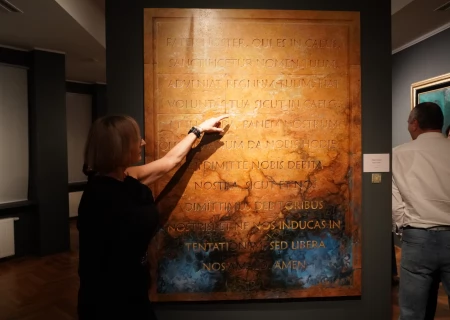 PATER NOSTER QUI ES IN CAELIS
SANCTIFICETUR NOMEN TUUM
ADVENIAT REGNUM TUUM FIAT
VOLUNTAS TUA SICUT IN CAELO
PANEM NOSTRUM
DA NOBIS HODIE
DIMITTE NOBIS DEBITA
NOSTRA SICUT ET NOS
DIMITTIMUS DEBITORIBUS
NOSTRIS ET NE NOS INDUCAS IN
TENTATI SED LIBERA
NOS AMEN